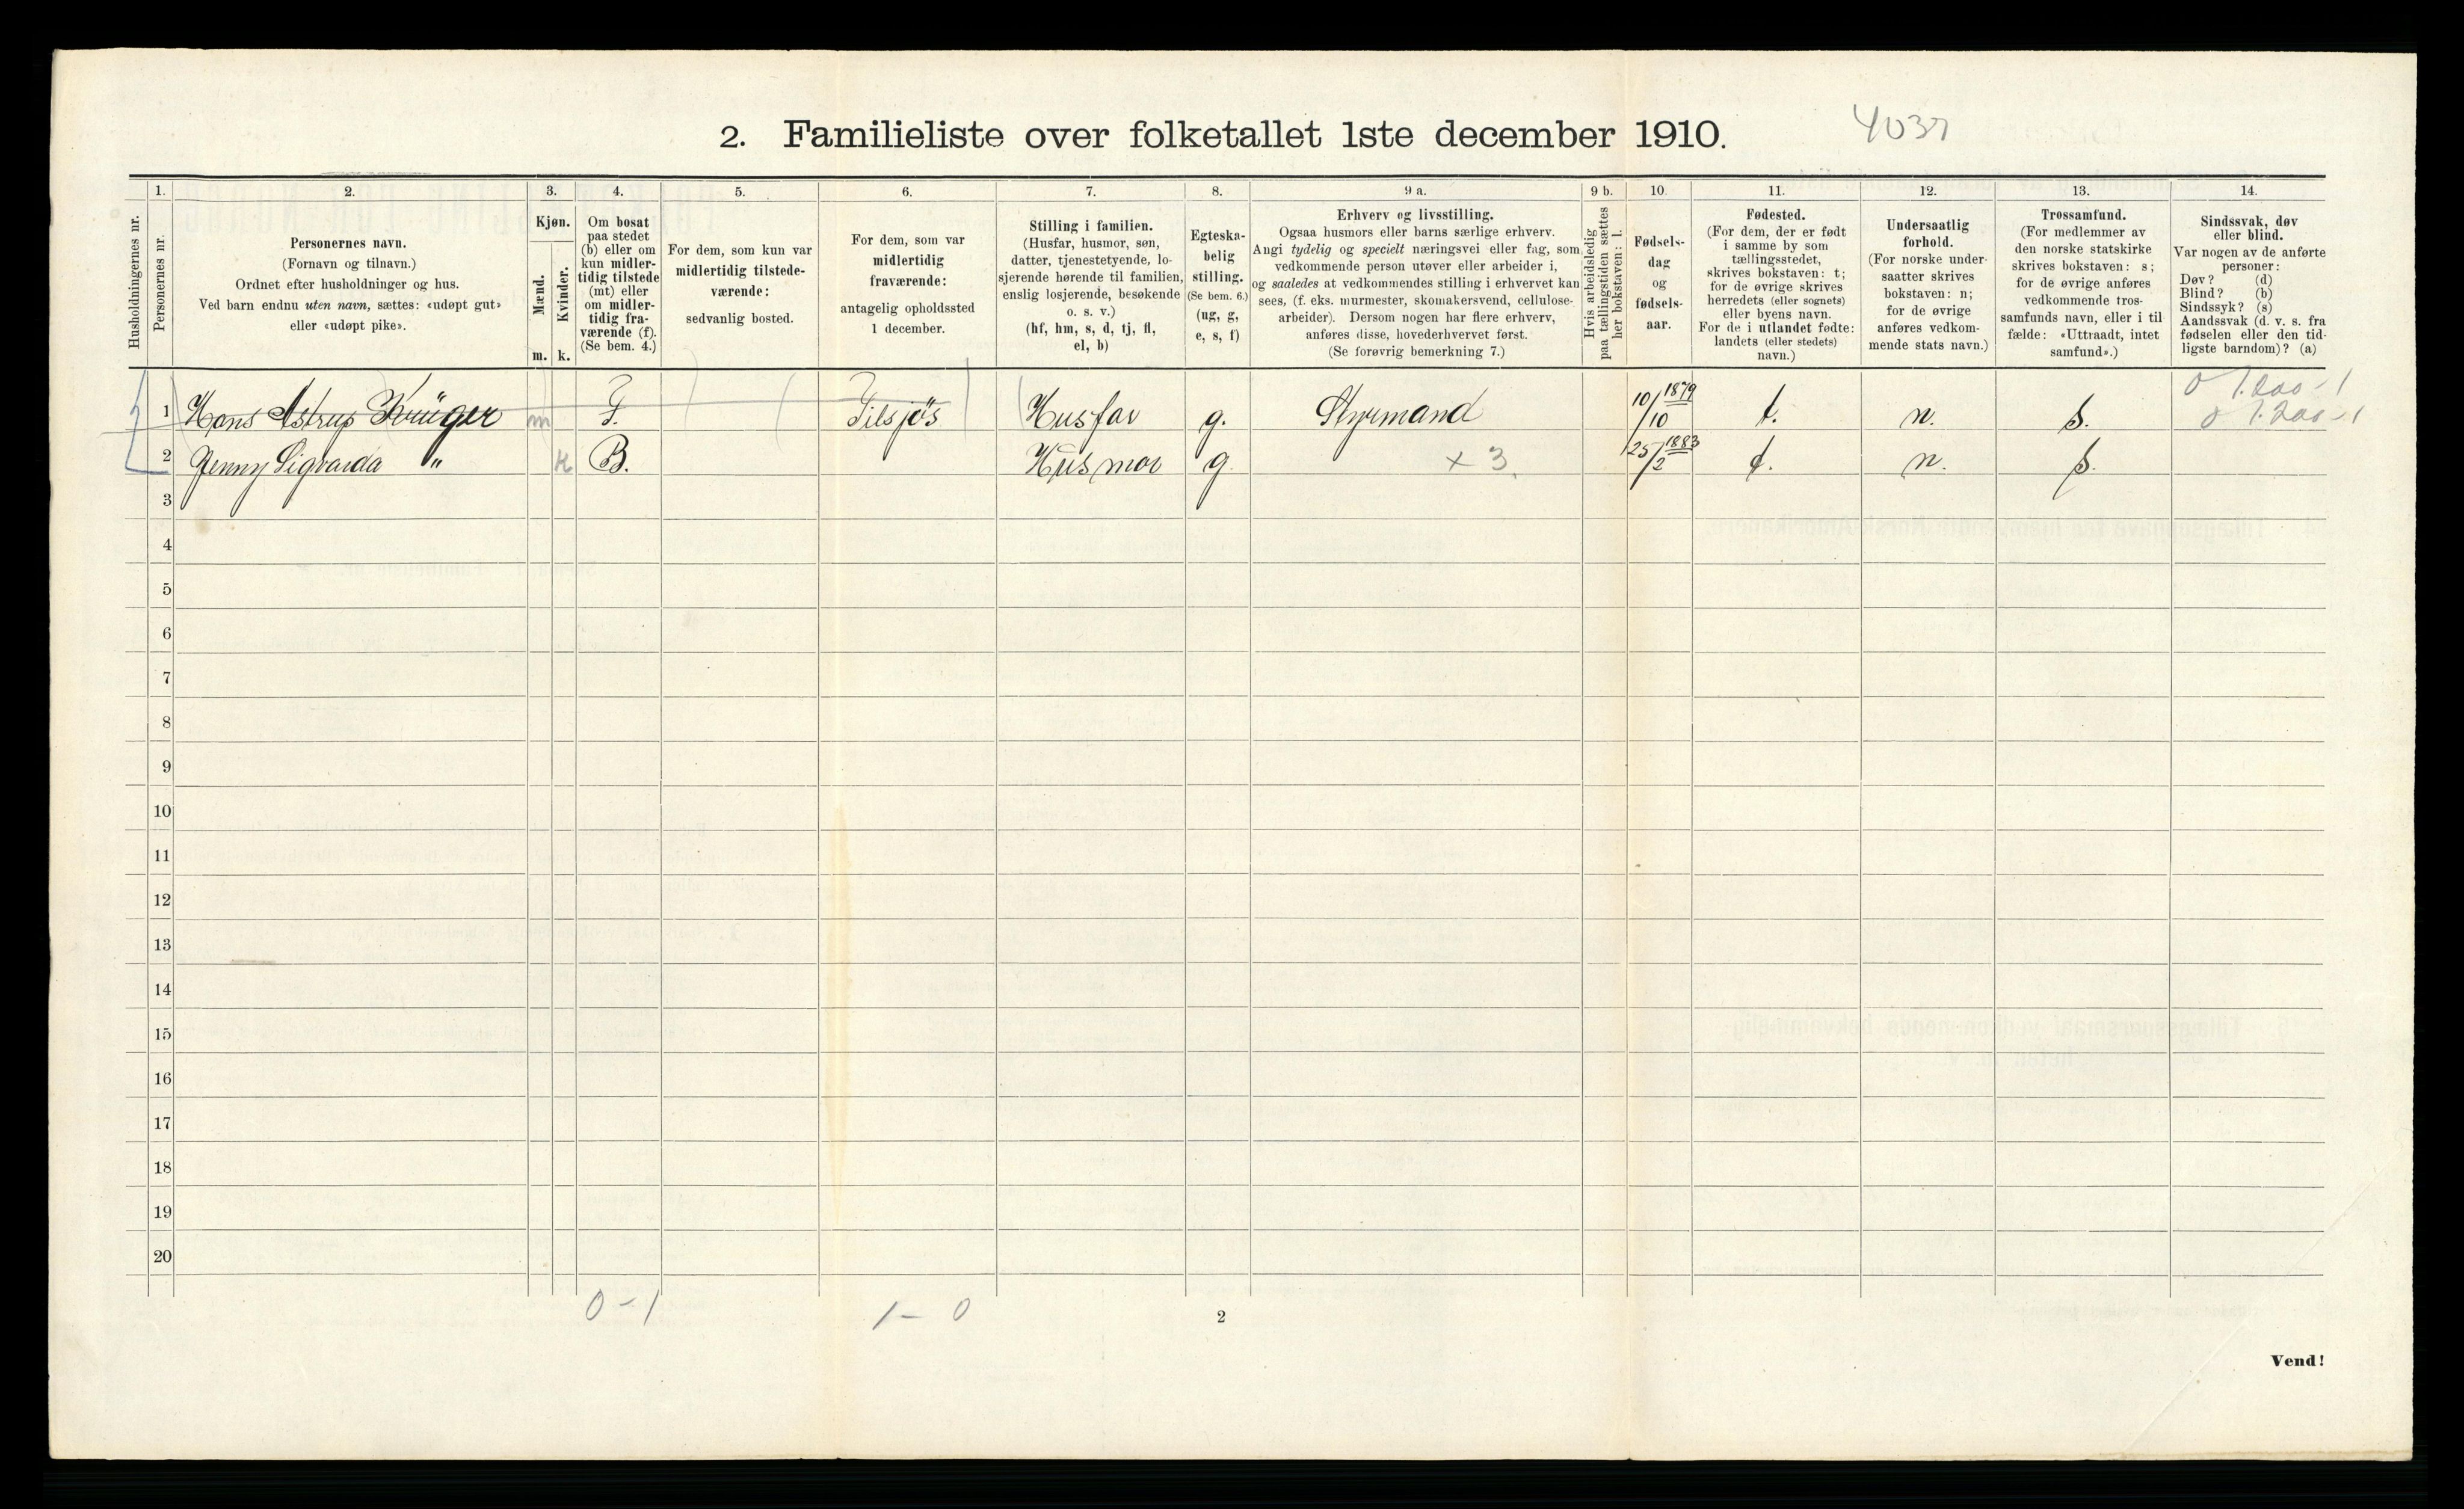 2. Familieliste over folketallet 1ste december 1910.
4037
1. 2. 3. 4. 5. 6. 7. 8. 9 a. 9 b. 10. 11. 12. 13. 14.
Husholdningernes nr.
Personernes nr.
Personernes navn.
(Fornavn og tilnavn.)
Ordnet efter husholdninger og hus.
Ved barn endnu uten navn, sættes: «udøpt gut»
eller «udøpt pike».
Kjøn.
Mænd.
Kvinder.
m. k.
Om bosat
paa stedet
(b) eller om
kun midler-
tidig tilstede
(mt) eller
om midler-
tidig fra-
værende (f).
(Se bem. 4.)
For dem, som kun var
midlertidig tilstede-
værende:
sedvanlig bosted.
For dem, som var
midlertidig
fraværende:
antagelig opholdssted
1 december.
Stilling i familien.
(Husfar, husmor, søn,
datter, tjenestetyende, lo-
sjerende hørende til familien,
enslig losjerende, besøkende
o. s. v.)
(hf, hm, s, d, tj, fl,
el, b)
Egteska-
belig
stilling.
(Se bem. 6.)
(ug, g,
e, s, f)
Erhverv og livsstilling.
Ogsaa husmors eller barns særlige erhverv.
Angi tydelig og specielt næringsvei eller fag, som
vedkommende person utøver eller arbeider i,
og saaledes at vedkommendes stilling i erhvervet kan
sees, (f. eks. murmester, skomakersvend, cellulose-
arbeider). Dersom nogen har flere erhverv,
anføres disse, hovederhvervet først.
(Se forøvrig bemerkning 7.)
Hvis arbeidsledig
paa tællingstiden sættes
her bokstaven: l.
Fødsels-
dag
og
fødsels-
aar.
Fødested.
(For dem, der er født
i samme by som
tællingsstedet,
skrives bokstaven: t;
for de øvrige skrives
herredets (eller sognets)
eller byens navn.
For de i utlandet fødte:
landets (eller stedets)
navn.)
Undersaatlig
forhold.
(For norske under-
saatter skrives
bokstaven: n;
for de øvrige
anføres vedkom-
mende stats navn.)
Trossamfund.
(For medlemmer av
den norske statskirke
skrives bokstaven: s;
for de øvrige anføres
vedkommende tros-
samfunds navn, eller i til
fælde: «Uttraadt, intet
samfund».)
Sindssvak, døv
eller blind.
Var nogen av de anførte
personer:
Døv? (d)
Blind? (b)
Sindssyk? (s)
Aandssvak (d. v. s. fra
fødselen eller den tid-
ligste barndom)? (a)
1 Hans Astrup Krüger m F. Tilsjös Husfar g. Styrmand 10/10 1879 t. n. s.
2 Jenny Sigvarda " k B. Husmor g. x 3. 25/2 1883 t. n. s.
3
4
5
6
7
8
9
10
11
12
13
14
15
16
17
18
19
20
0-1 1-0
2
Vend!